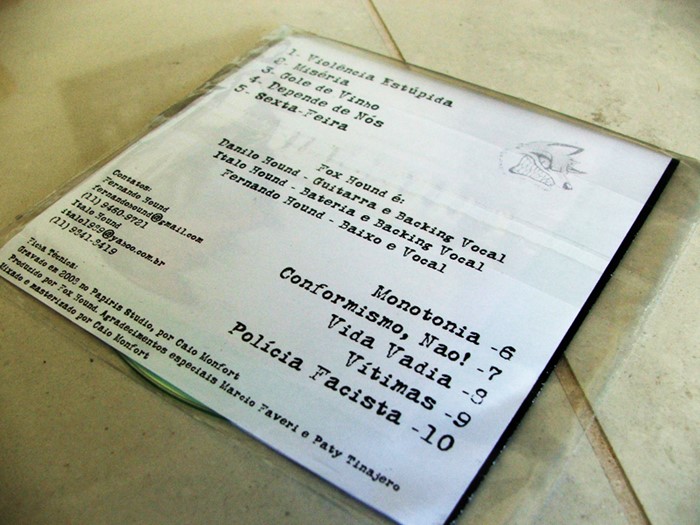 1. Violência Estúpida
2. Miséria
3. Gole de Vinho
4. Depende de Nós
5. Sexta-Feira
Fox Hound é:
Danilo Hound - Guitarra e Backing Vocal
Italo Hound - Bateria e Backing Vocal
Fernando Hound - Baixo e Vocal
Contatos:
Fernando Hound
fernandohound@gmail.com
(11) 9460-9721
Italo Hound
(11) 9341-3419
Monotonia -6
Conformismo, Nao! -7
Vida Vadia -8
Vítimas -9
Polícia Facista -10
Ficha Técnica:
Gravado em 2008 no Papiris Studio, por Caio Monfort
Produzido por Fox Hound. Agradecimentos especiais Marcio Faveri e Paty Tinajero
Mixado e masterizado por Caio Monfort